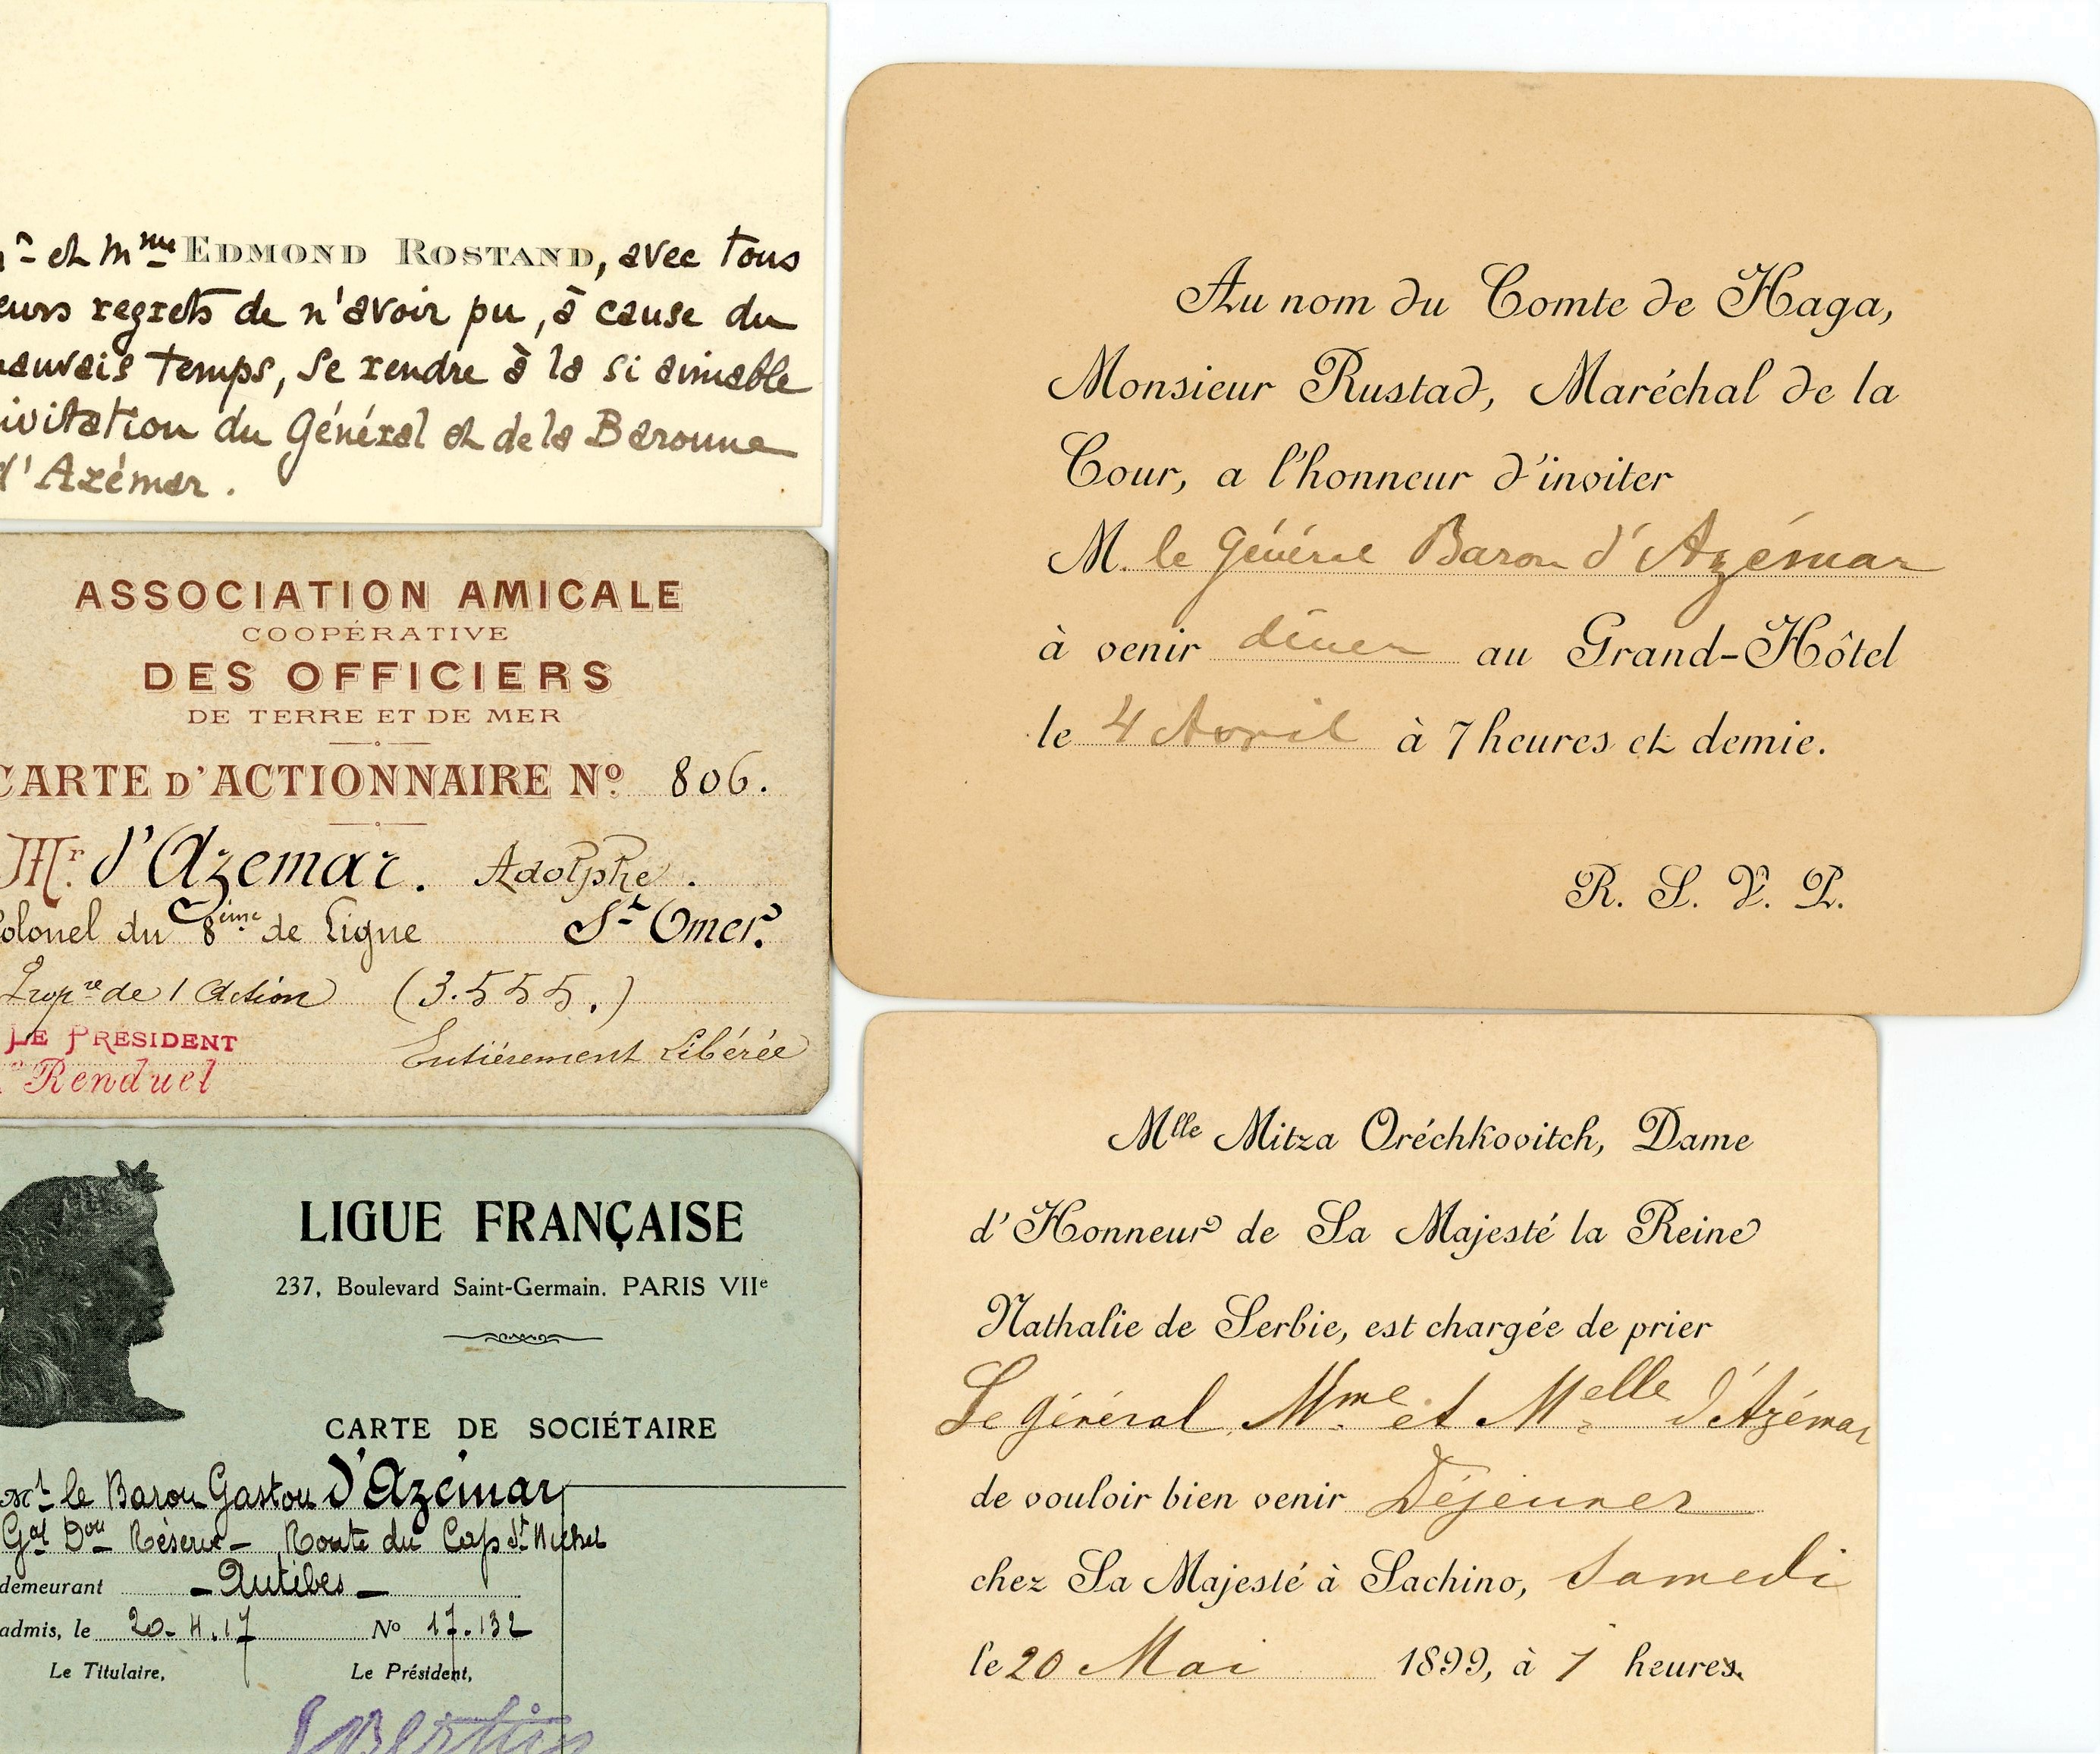 et Mme EDMOND ROSTAND, avec tous
eurs regrets de n'avoir pu, à cause du
auvais temps, se rendre à la si aimable
ivitation du Général et de la Baronne
d'Azémar.
ASSOCIATION AMICALE
COOPÉRATIVE
DES OFFICIERS
DE TERRE ET DE MER
CARTE D'ACTIONNAIRE No 806.
Mr. d'Azemar. Adolphe.
olonel du 8ème de Ligne St Omer.
Propre de 1 Action (3.555.)
LE PRÉSIDENT
Renduel
Entièrement Libérée
LIGUE FRANÇAISE
237, Boulevard Saint-Germain. PARIS VIIe
CARTE DE SOCIÉTAIRE
Mr le Baron Gaston d'Azémar
Gal Don Réserve - Route du Cap St Michel
demeurant - Antibes -
admis, le 20.4.17 No 17.132
Le Titulaire, Le Président,
Au nom du Comte de Haga,
Monsieur Rustad, Maréchal de la
Cour, a l'honneur d'inviter
M. le Général Baron d'Azémar
à venir diner au Grand-Hôtel
le 4 Avril à 7 heures et demie.
R. S. V. P.
Mlle Mitza Oréchkovitch, Dame
d'Honneur de Sa Majesté la Reine
Nathalie de Serbie, est chargée de prier
Le général, Mme et Melle d'Azémar
de vouloir bien venir Déjeuner
chez Sa Majesté à Sachino, Samedi
le 20 Mai 1899, à 1 heures.